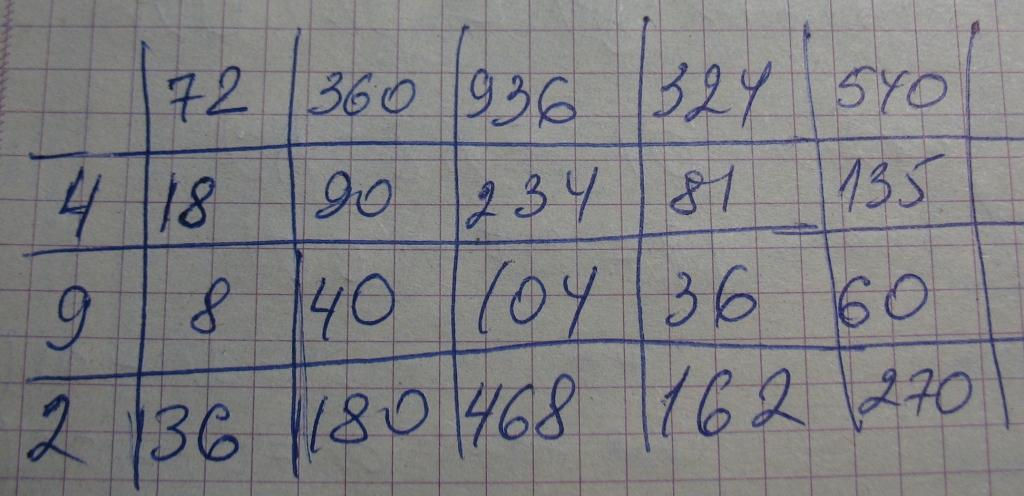 72 360 936 324 540
4 18 90 234 81 135
9 8 40 104 36 60
2 36 180 468 162 270